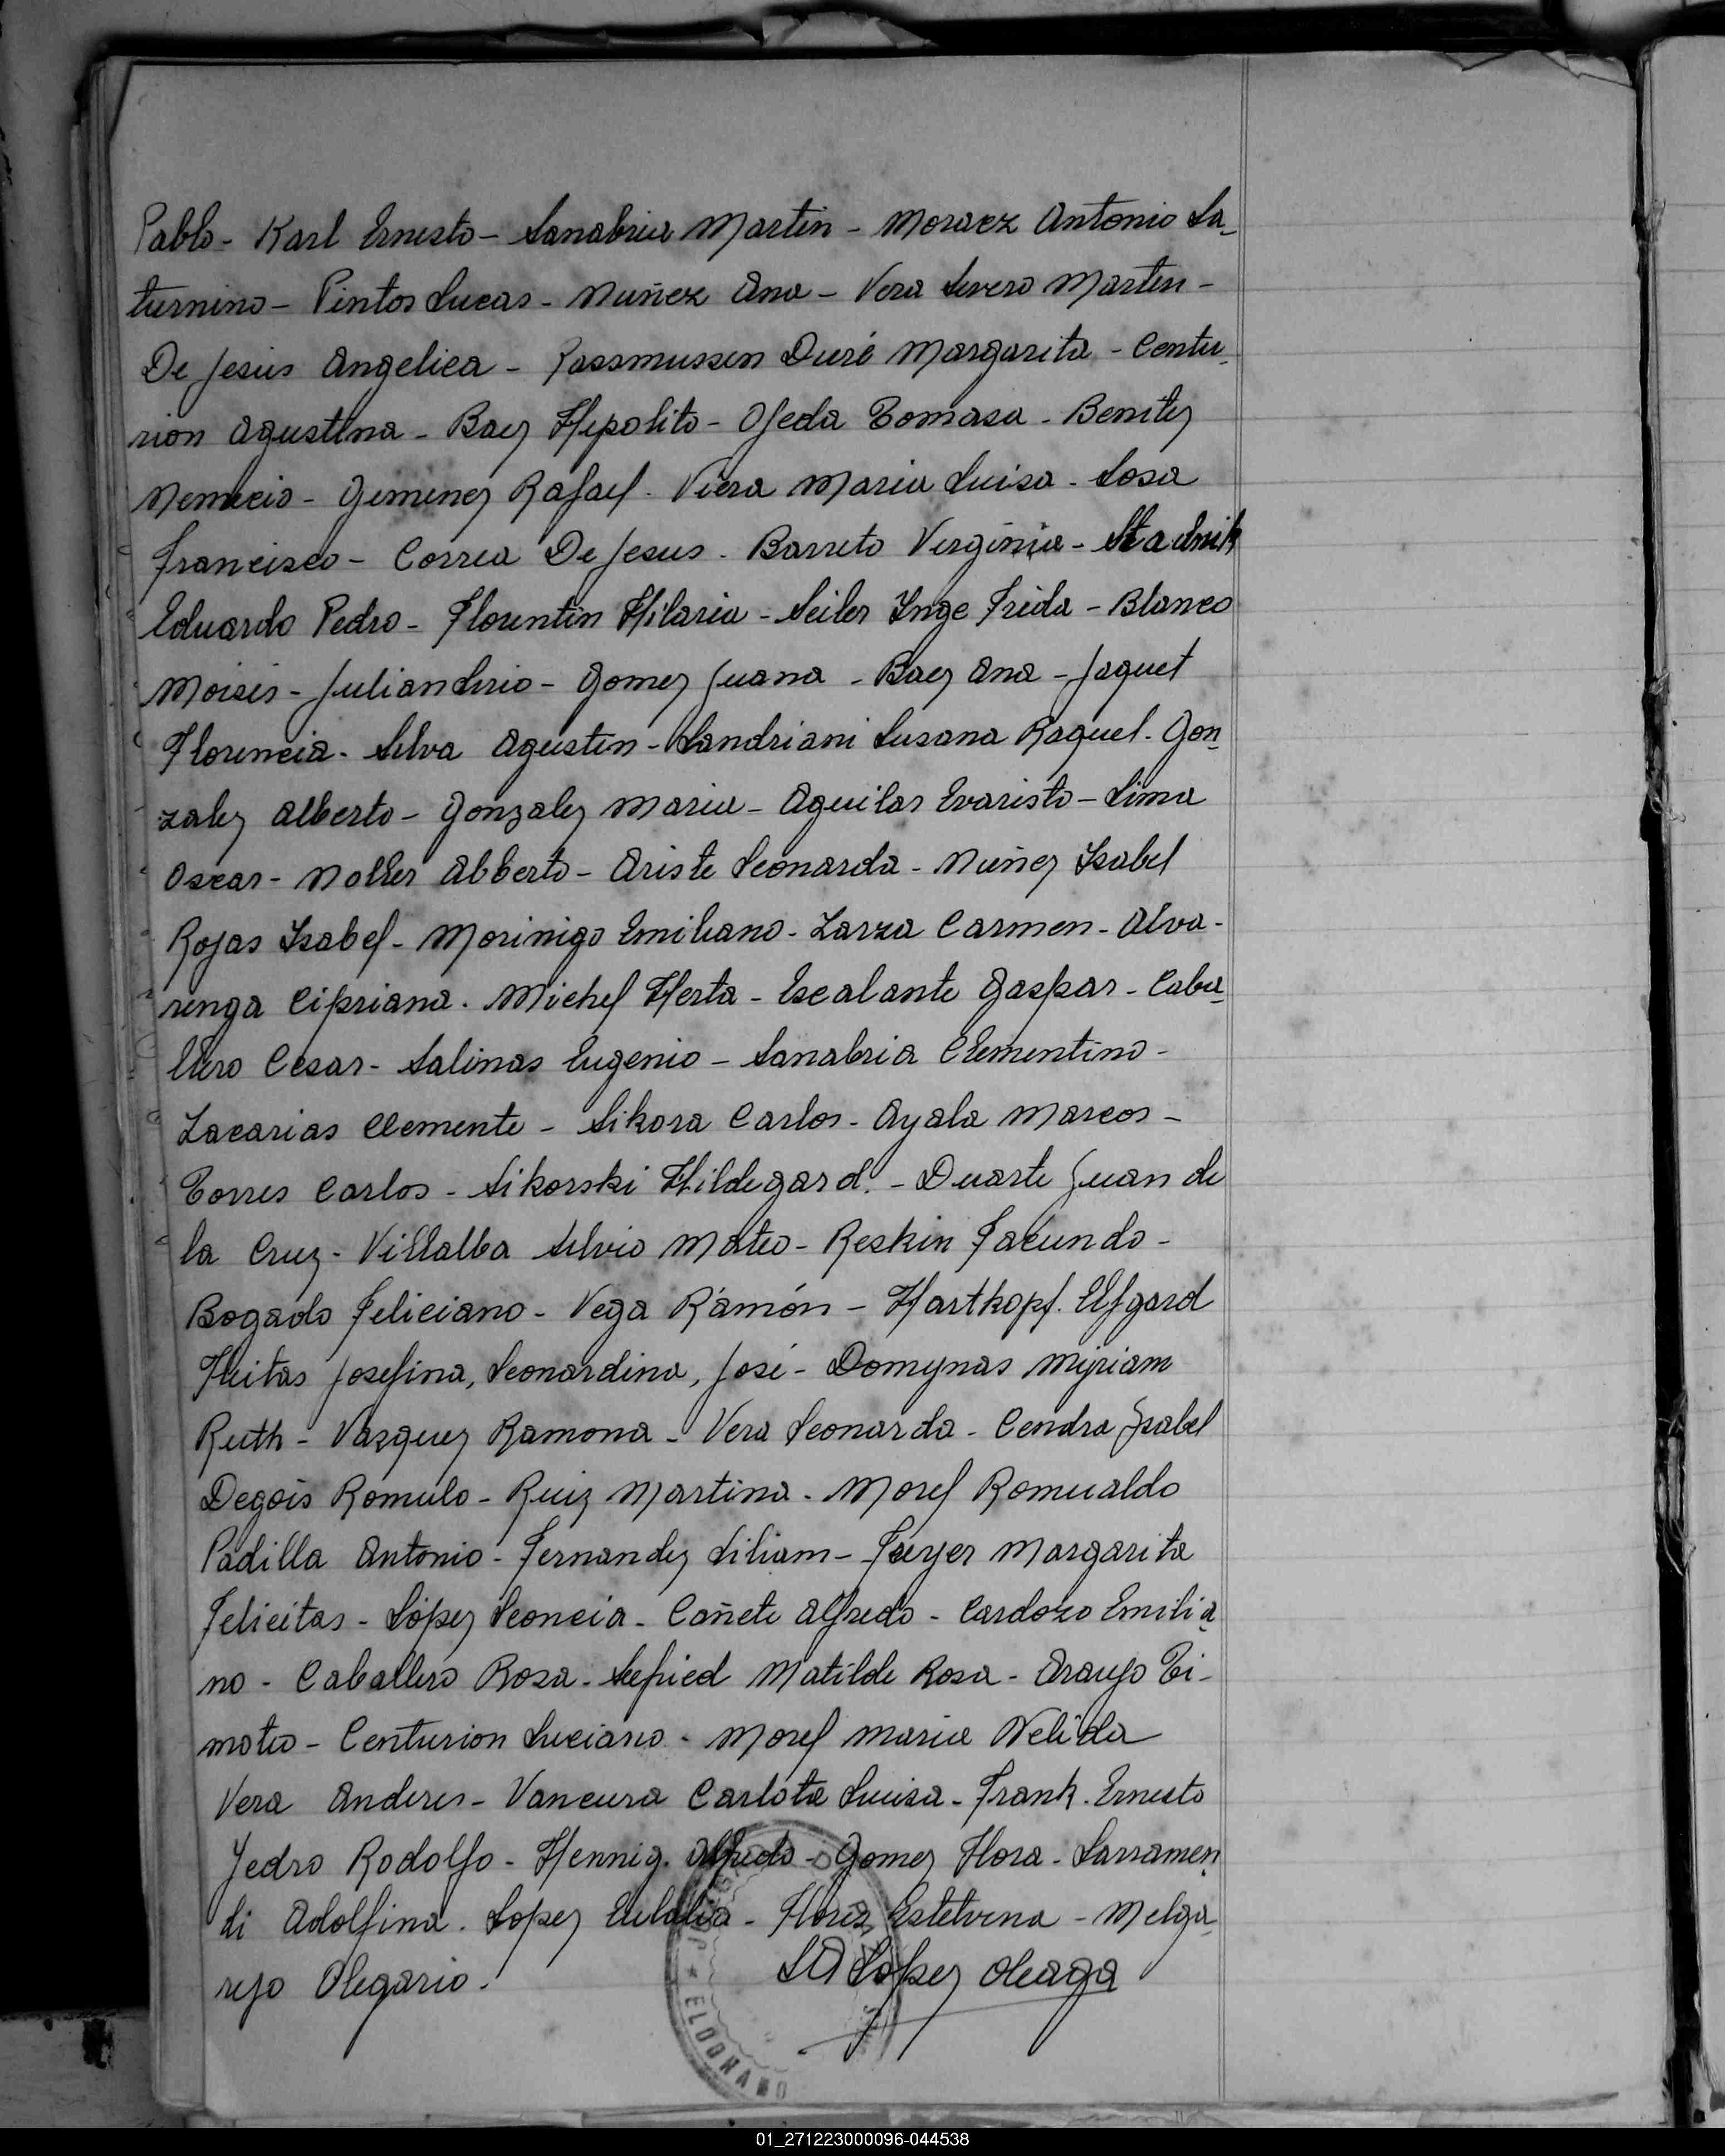 Pablo - Karl Ernesto - Sanabria Martin - Moraez Antonio Sa-
turnino - Pintos Lucas - Nuñez Ana - Vera Severo Martin -
De Jesús Angelica - Rassmussen Duré Margarita - Centu-
rion Agustina - Baez Hipolito - Ojeda Tomasa - Benitez
Nemecio - Gimenez Rafael - Viera Maria Luisa - Sosa
Francisco - Correa De Jesus - Barreto Virginia - Stadnik
Eduardo Pedro - Florentin Hilaria - Seiler Inge Frida - Blanco
Moisés - Julian Lirio - Gomez Juana - Baez Ana - Jaquet
Florencia - Silva Agustin - Landriani Susana Raquel - Gon-
zalez Alberto - Gonzalez Maria - Aguilar Evaristo - Lima
Oscar - Noller Alberto - Ariste Leonarda - Nuñez Isabel
Rojas Isabel - Morinigo Emiliano - Zarza Carmen - Alva-
renga Cipriana - Michel Herta - Escalante Gaspar - Caba-
llero Cesar - Salinas Eugenio - Sanabria Clementino -
Zacarias Clemente - Sikora Carlos - Ayala Marcos -
Torres Carlos - Sikorski Hildegard. - Duarte Juan de
la Cruz - Villalba Silvio Mateo - Reskin Facundo -
Bogado Feliciano - Vega Ramón - Hartkopf. Elfgard
Fleitas Josefina, Leonardina, José - Domynas Myriam
Ruth - Vazquez Ramona - Vera Leonarda - Cendra Isabel
Degois Romulo - Ruiz Martina - Morel Romualdo
Padilla Antonio - Fernandez Liliam - Freyer Margarita
Felicitas - López Leoncia - Cañete Alfredo - Cardozo Emilia-
no - Caballero Rosa - Seepied Matilde Rosa - Araujo Ti-
moteo - Centurion Luciano - Morel Maria Nelida
Vera Anderes - Vancura Carlota Luisa - Frank. Ernesto
Yedro Rodolfo - Hennig. Alfredo - Gomez Flora - Larramen-
di Adolfina - Lopez Eulalia - Flores Estelvina - Melga-
rejo Olegario.
López Oleaga
ELDORADO
01_271223000096-044538